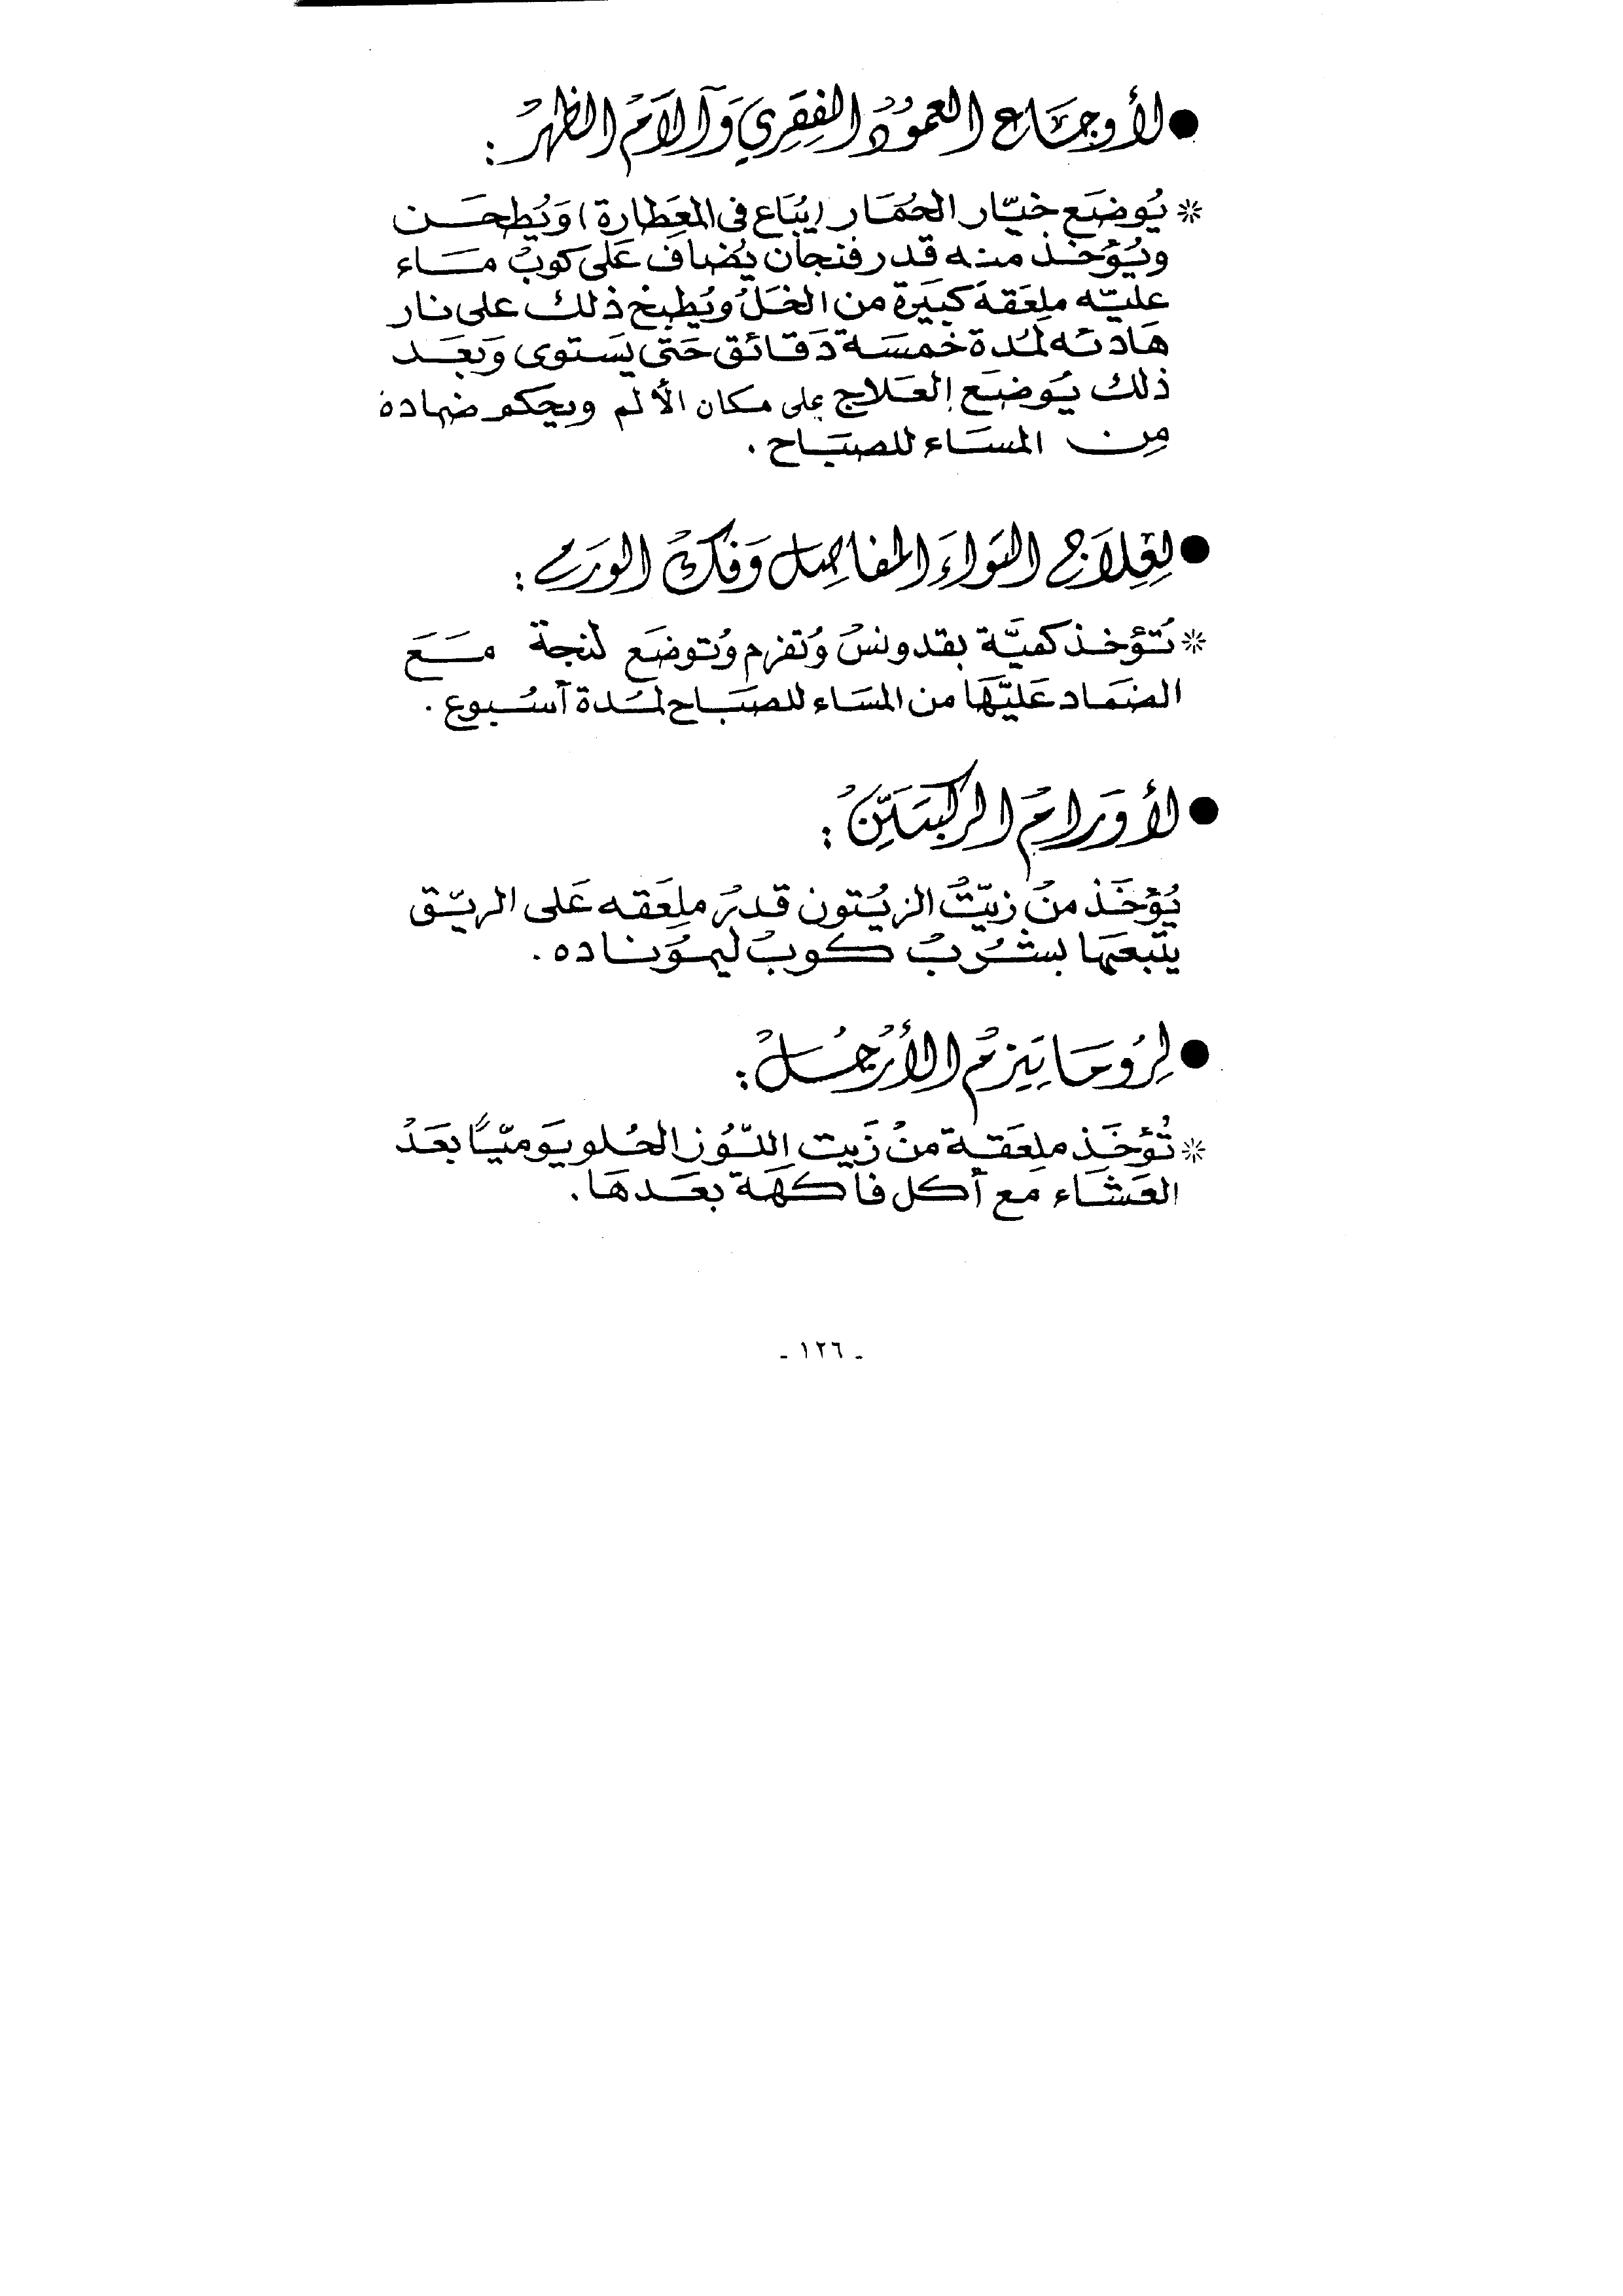 ● لأوجَاع العمُودُ الفِقَرِي وَآلاَمْ الظهرْ :
* يُوضَع خيّار الحُمَار (يُبَاع فى المعَطارة) وَيُطحَن
ويُؤخذ منه قدر فنجان يُضاف عَلى كوبْ مَاء
عليّه ملعَقة كبيَرة من الخَلْ ويُطبخ ذلك على نار
هَادئه لمُدة خمسَة دَقائق حَتى يَستوى وَبعَد
ذلك يُوضَع العَلاج على مكان الألم ويحكم ضماده
مِن المسَاء للصبَاح .
● لِعِلاَج التوَاءَ المفاصِل وَفكْ الورَم :
* تُؤخذ كميَّة بقدونسْ وُتفرم وُتوضَع لنجة مَعَ
الضمَاد عَليّهَا من المسَاء للصبَاح لمُدة أسُبوع .
● لأوَرامْ الركبتَيّنْ :
يُؤخَذ منْ زيّتْ الزيُتون قدرْ ملعَقه عَلى الريّق
يتبعهَا بشُربْ كوبْ ليموَناده .
● لِرُومَاتيِزمْ الأرْجُلْ :
* تُؤخَذ ملعَقة منْ زَيت اللّوُز الحُلو يَوميّاً بعَدْ
العَشَاء مَع أكل فاكهَة بعَدهَا .
- ١٢٦ -